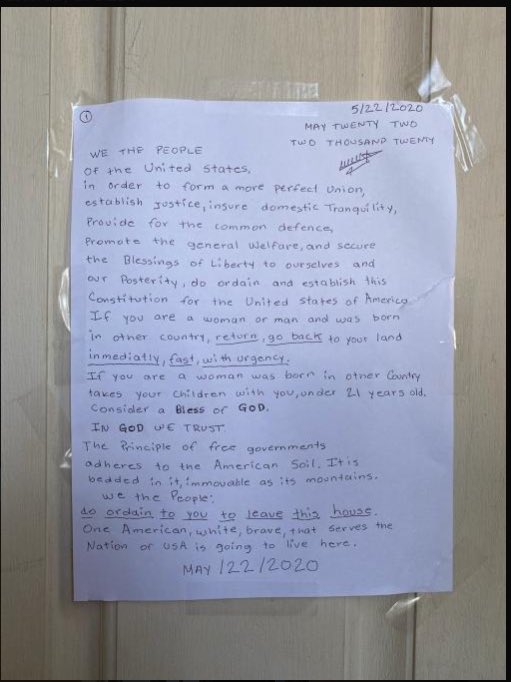 ①
5/22/2020
MAY TWENTY TWO
TWO THOUSAND TWENTY
WE THE PEOPLE
Of the United States,
in order to form a more perfect Union,
establish justice, insure domestic Tranquility,
Provide for the common defence,
Promote the general Welfare, and secure
the Blessings of Liberty to ourselves and
our Posterity, do ordain and establish this
Constitution for the United States of America
If you are a woman or man and was born
in other country, return, go back to your land
inmediatly, fast, with urgency.
If you are a woman was born in other Country
takes your children with you, under 21 years old.
Consider a Bless of GOD.
IN GOD WE TRUST
The Principle of free governments
adheres to the American Soil. It is
bedded in it, immovable as its mountains.
We the People;
do ordain to you to leave this house.
One American, white, brave, that serves the
Nation or USA is going to live here.
MAY /22/2020